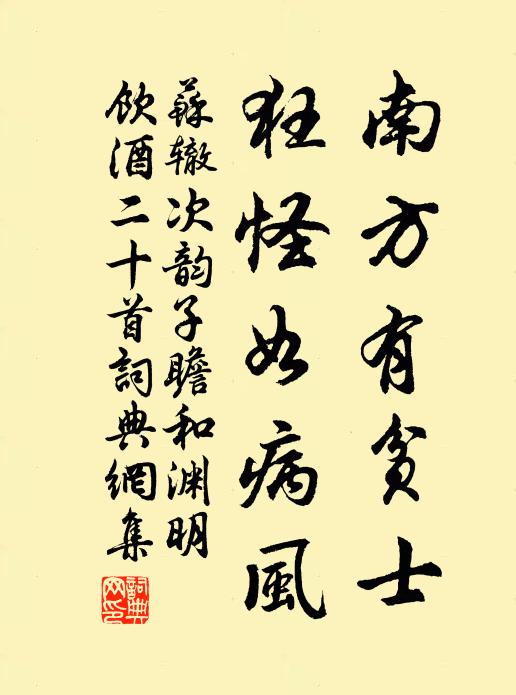 南方有贫士
狂怪如病風
蘇辙次韵子瞻和渊明
飲酒二十首詞典網集
詞典
网印